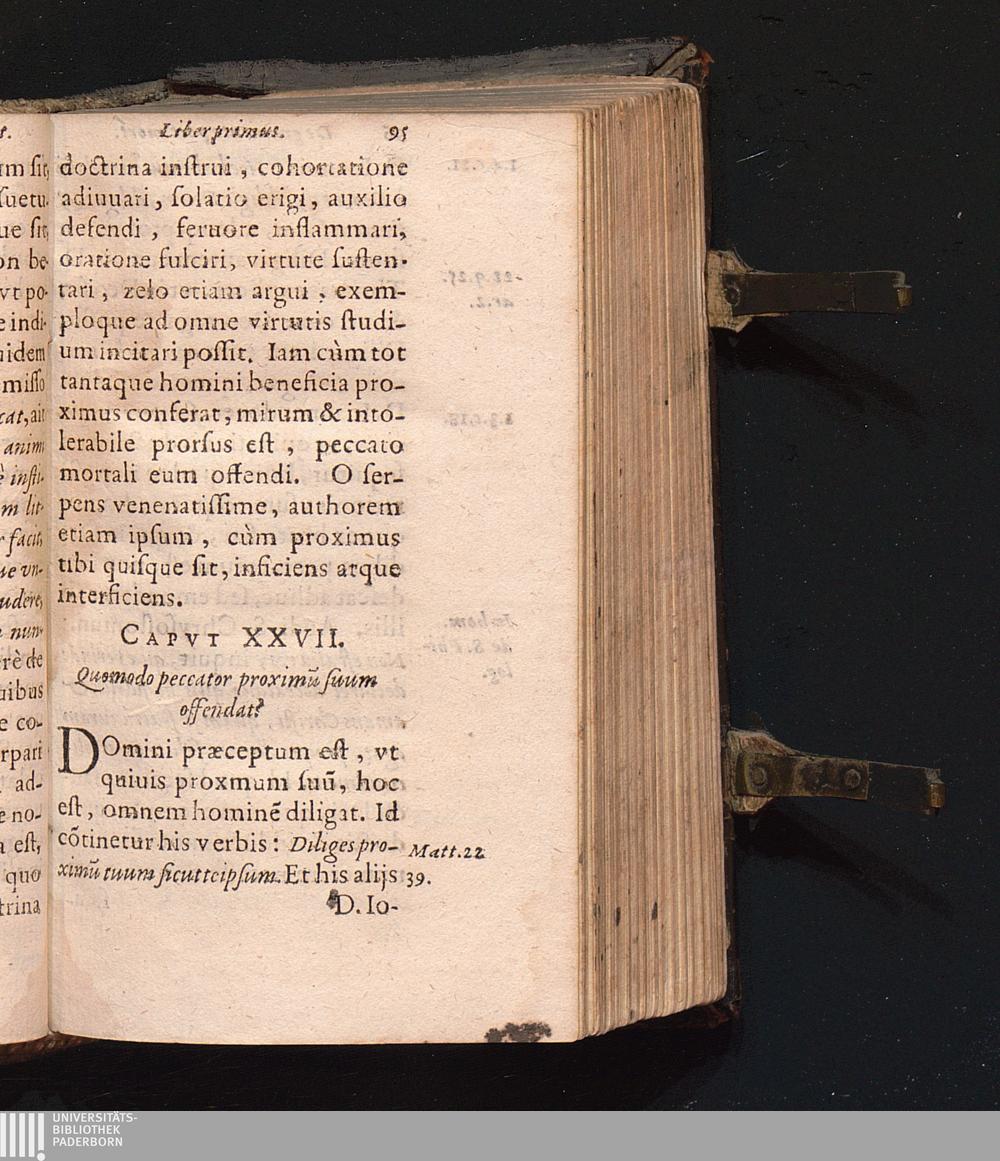 Liber primus. 95
doctrina inſtrui, cohortatione
adiuuari, ſolatio erigi, auxilio
defendi, feruore inflammari,
oratione fulciri, virtute ſuſten-
tari, zelo etiam argui, exem-
ploque ad omne virtutis ſtudi-
um incitari poſſit. Iam cùm tot
tantaque homini beneficia pro-
ximus conferat, mirum & into-
lerabile prorſus eſt, peccato
mortali eum offendi. O ſer-
pens venenatiſſime, authorem
etiam ipſum, cùm proximus
tibi quiſque ſit, inficiens atque
interficiens.
CAPVT XXVII.
Quomodo peccator proximũ ſuum
offendat?
DOmini præceptum eſt, vt
quiuis proxmum ſuũ, hoc
eſt, omnem hominẽ diligat. Id
cõtinetur his verbis: Diliges pro-
ximũ tuum ſicut teipſum. Et his alijs
Matt. 22
39.
D. Io-
UNIVERSITÄTS-
BIBLIOTHEK
PADERBORN